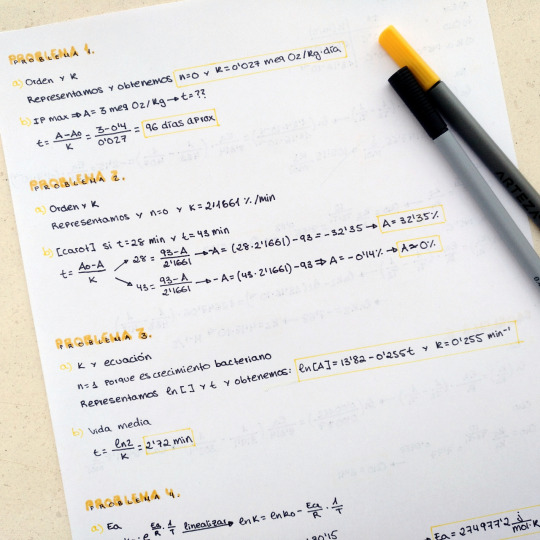 PROBLEMA 1.
a) Orden y K
Representamos y obtenemos n=0 y K=0'027 meq O2/Kg·día
b) IP max ⇒ A = 3 meq O2/Kg → t = ??
t = (A-A0)/K = (3-0'4)/0'027 = 96 días aprox
PROBLEMA 2.
a) Orden y K
Representamos y n=0 y K=2'1661 %/min
b) [carot] si t=28 min y t=43 min
t = (A0-A)/K
28 = (93-A)/2'1661 → -A = (28·2'1661) - 93 = -32'35 → A = 32'35%
43 = (93-A)/2'1661 → -A = (43·2'1661) - 93 ⇒ A = -0'14% → A ≈ 0%
PROBLEMA 3.
a) K y ecuación
n=1 porque es crecimiento bacteriano
Representamos ln[ ] y t y obtenemos: ln[A] = 13'82 - 0'255t y K = 0'255 min⁻¹
b) Vida media
t = ln2/K = 2'72 min
PROBLEMA 4.
a) Ea
Ea/R · 1/T linealizar → ln K = ln K0 - Ea/R · 1/T
Ea = 274977'2 J/mol·K
ARTEZA